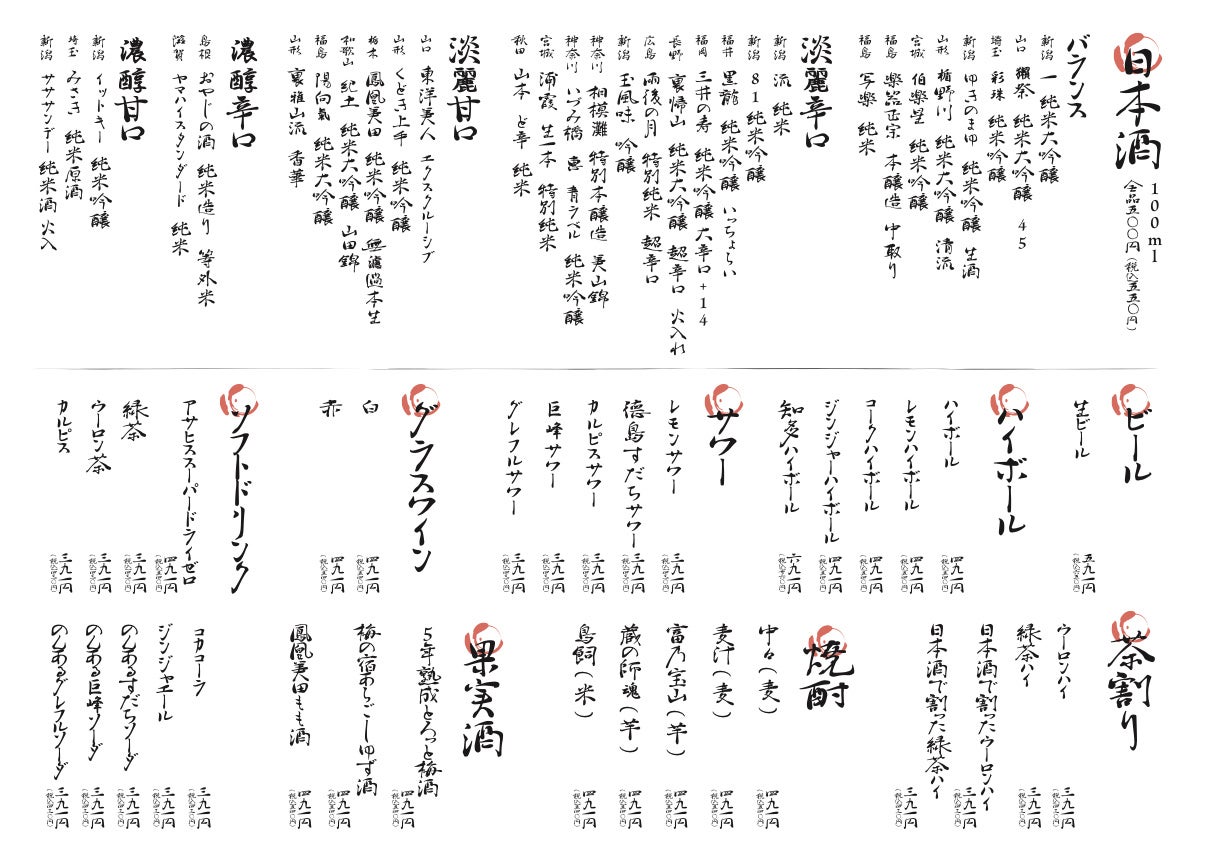 日本酒
100ml
全品五〇〇円(税込五五〇円)
バランス
新潟 一 純米大吟醸
山口 獺祭 純米大吟醸 45
埼玉 彩珠 純米吟醸
新潟 ゆきのまゆ 純米吟醸 生酒
山形 楯野川 純米大吟醸 清流
宮城 伯楽星 純米吟醸
福島 楽器正宗 本醸造 中取り
福島 写楽 純米
淡麗辛口
新潟 流 純米
新潟 81 純米吟醸
福井 黒龍 純米吟醸 いっちょらい
福岡 三井の寿 純米吟醸 大辛口+14
長野 裏帰山 純米大吟醸 超辛口 火入れ
広島 雨後の月 特別純米 超辛口
新潟 玉風味 吟醸
神奈川 相模灘 特別本醸造 美山錦
神奈川 いづみ橋 恵 青ラベル 純米吟醸
宮城 浦霞 生一本 特別純米
秋田 山本 ど辛 純米
淡麗甘口
山口 東洋美人 エクスクルーシブ
山形 くどき上手 純米吟醸
栃木 鳳凰美田 純米吟醸 無濾過本生
和歌山 紀土 純米大吟醸 山田錦
福島 陽向氣 純米大吟醸
山形 裏雅山流 香華
濃醇辛口
島根 おやじの酒 純米造り 等外米
滋賀 ヤマハイスタンダード 純米
濃醇甘口
新潟 イットキー 純米吟醸
埼玉 みさき 純米原酒
新潟 サササンデー 純米酒 火入
ビール
生ビール 五九一円(税込六五〇円)
ハイボール
ハイボール 四九一円(税込五四〇円)
レモンハイボール 四九一円(税込五四〇円)
コークハイボール 四九一円(税込五四〇円)
ジンジャーハイボール 四九一円(税込五四〇円)
知多ハイボール 六九一円(税込七六〇円)
サワー
レモンサワー 三九一円(税込四三〇円)
徳島すだちサワー 三九一円(税込四三〇円)
カルピスサワー 三九一円(税込四三〇円)
巨峰サワー 三九一円(税込四三〇円)
グレフルサワー 三九一円(税込四三〇円)
グラスワイン
白 四九一円(税込五四〇円)
赤 四九一円(税込五四〇円)
ソフトドリンク
アサヒスーパードライゼロ 四九一円(税込五四〇円)
緑茶 三九一円(税込四三〇円)
ウーロン茶 三九一円(税込四三〇円)
カルピス 三九一円(税込四三〇円)
茶割り
ウーロンハイ 三九一円(税込四三〇円)
緑茶ハイ 三九一円(税込四三〇円)
日本酒で割ったウーロンハイ 三九一円(税込四三〇円)
日本酒で割った緑茶ハイ 三九一円(税込四三〇円)
焼酎
中々(麦) 四九一円(税込五四〇円)
麦汁(麦) 四九一円(税込五四〇円)
富乃宝山(芋) 四九一円(税込五四〇円)
蔵の師魂(芋) 四九一円(税込五四〇円)
鳥飼(米) 四九一円(税込五四〇円)
果実酒
5年熟成とろっと梅酒 四九一円(税込五四〇円)
梅の宿あらごしゆず酒 四九一円(税込五四〇円)
鳳凰美田もも酒 四九一円(税込五四〇円)
コカコーラ 三九一円(税込四三〇円)
ジンジャエール 三九一円(税込四三〇円)
のんあるすだちソーダ 三九一円(税込四三〇円)
のんある巨峰ソーダ 三九一円(税込四三〇円)
のんあるグレフルソーダ 三九一円(税込四三〇円)